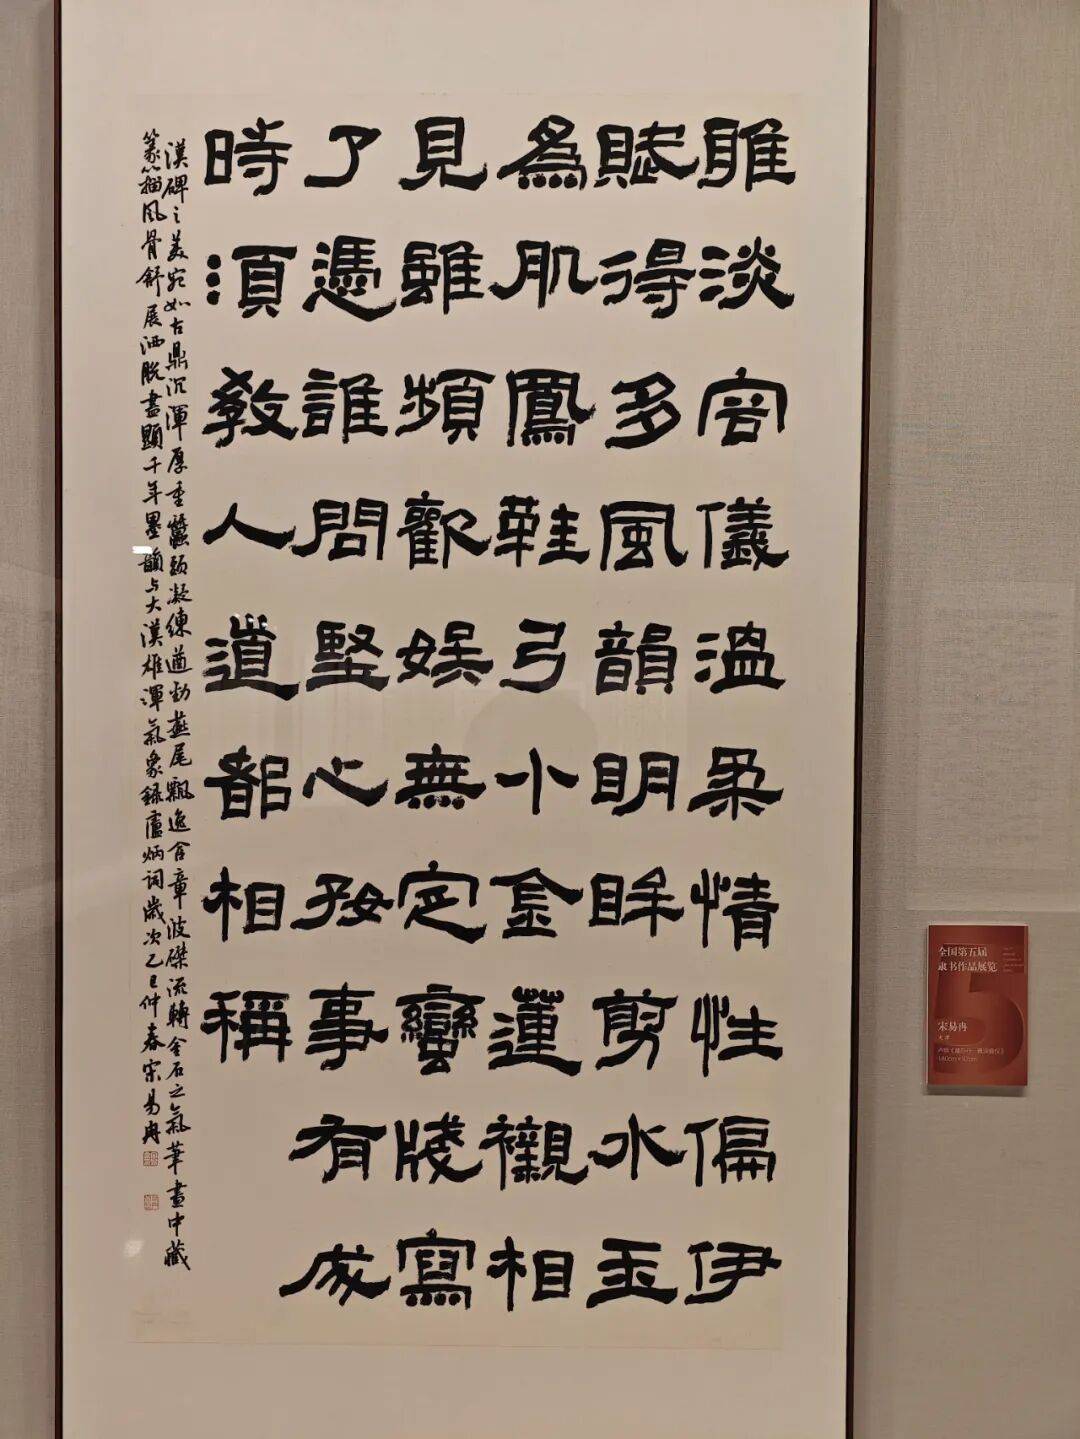 雅淡容儀溫柔情性偏伊
賦得多風韻明眸剪水玉
為肌鳳鞋弓小金蓮襯相
見雖頻歡娛無定蠻牋寫
了憑誰問堅心好事有成
時須教人道都相稱
漢碑之美宛如古鼎沉渾厚重蠶頭凝練遒勁燕尾飄逸含章波磔流轉金石之氣筆畫中藏
篆籀風骨舒展洒脫盡顯千年墨韻与大漢雄渾氣象錄盧炳詞歲次乙巳仲春宋易冉
全国第五届
隶书作品展览
宋易冉
天津